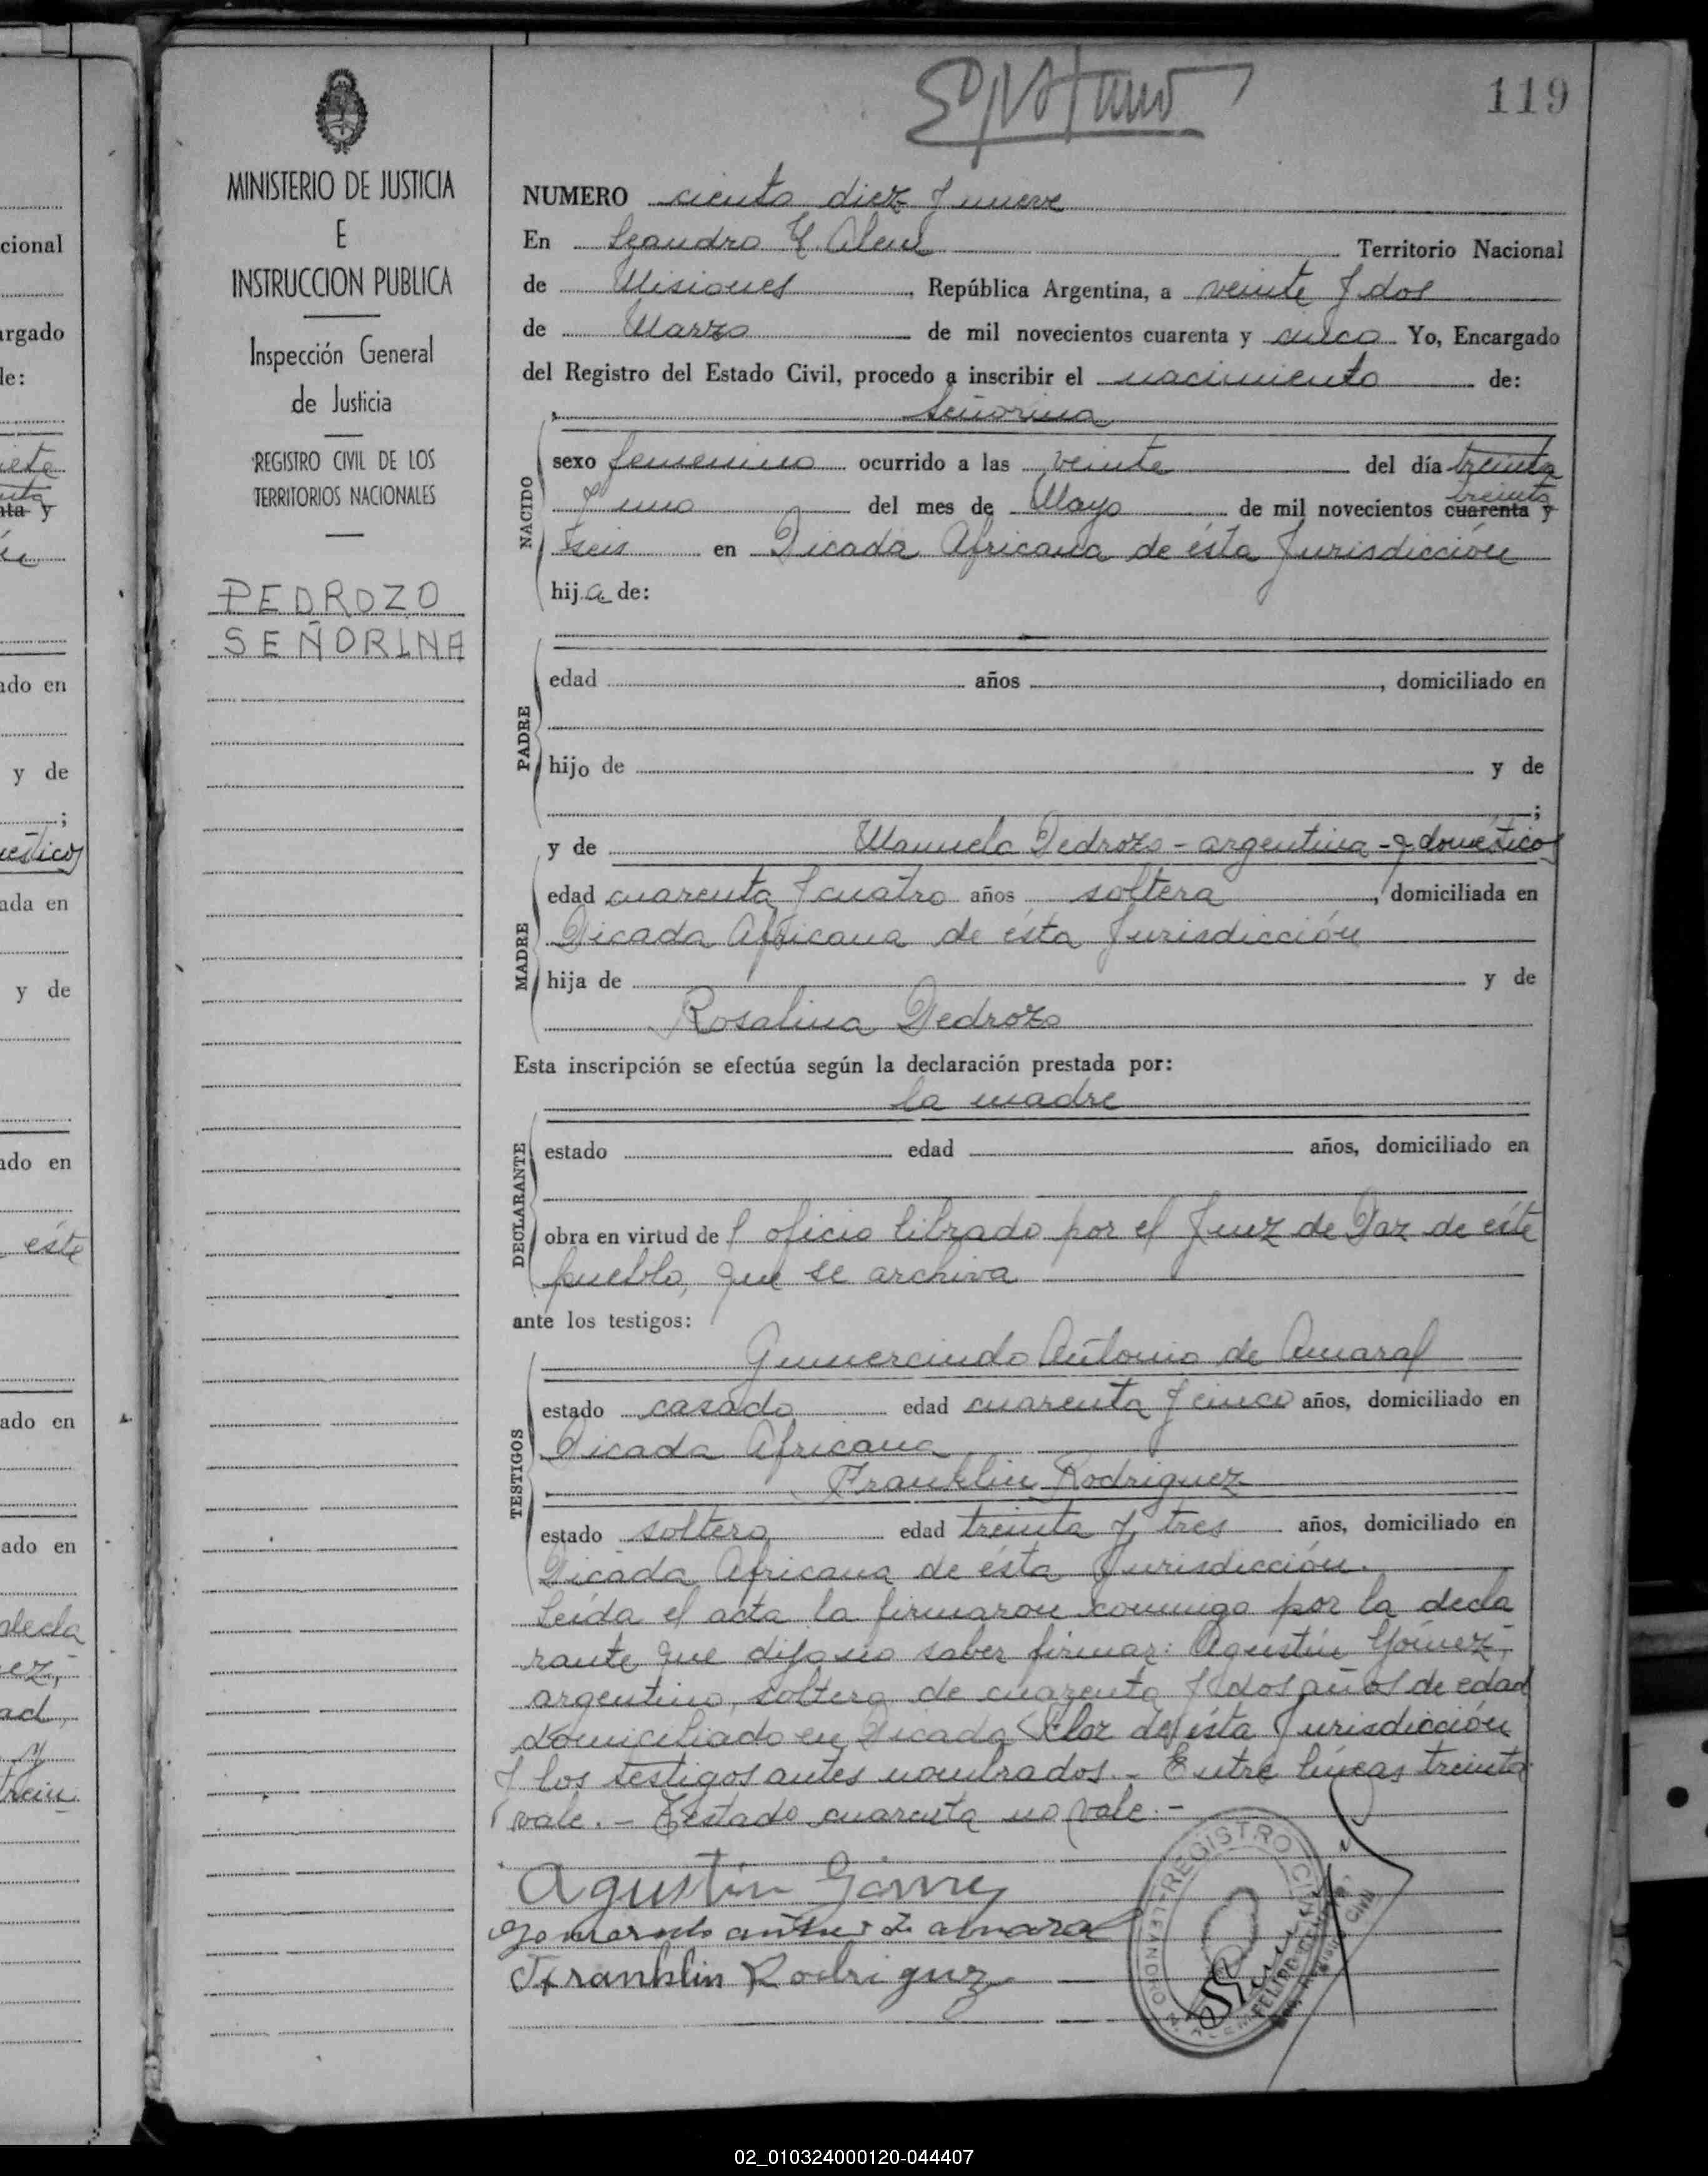 119
MINISTERIO DE JUSTICIA
E
INSTRUCCION PUBLICA
Inspección General
de Justicia
REGISTRO CIVIL DE LOS
TERRITORIOS NACIONALES
PEDROZO
SEÑORINA
NUMERO ciento diez y nueve
En Leandro N. Alem Territorio Nacional
de Misiones, República Argentina, a veinte y dos
de Marzo de mil novecientos cuarenta y cinco Yo, Encargado
del Registro del Estado Civil, procedo a inscribir el nacimiento de:
Señorina
NACIDO
sexo femenino ocurrido a las veinte del día treinta
treinta
y uno del mes de Mayo de mil novecientos cuarenta y
seis en Picada Africana de ésta Jurisdicción
hija de:
PADRE
edad años, domiciliado en
hijo de y de
;
y de Manuela Pedrozo - argentina - q. domésticos
MADRE
edad cuarenta y cuatro años soltera, domiciliada en
Picada Africana de ésta Jurisdicción
hija de y de
Rosalina Pedrozo
Esta inscripción se efectúa según la declaración prestada por:
la madre
DECLARANTE
estado edad años, domiciliado en
obra en virtud del oficio librado por el Juez de Paz de éste
pueblo, que se archiva
ante los testigos:
TESTIGOS
Gumercindo Antonio de Amaral
estado casado edad cuarenta y cinco años, domiciliado en
Picada Africana
Franklin Rodriguez
estado soltero edad treinta y tres años, domiciliado en
Picada Africana de ésta Jurisdicción.
Leída el acta la firmaron conmigo por la decla
rante que dijo no saber firmar: Agustín Gómez,
argentino, soltero de cuarenta y dos años de edad
domiciliado en Picada Flor de ésta Jurisdicción
y los testigos antes nombrados. - Entre líneas treinta
vale. - Testado cuarenta no vale. -
Agustin Gómez
Franklin Rodriguez
REGISTRO CIVIL
02_010324000120-044407